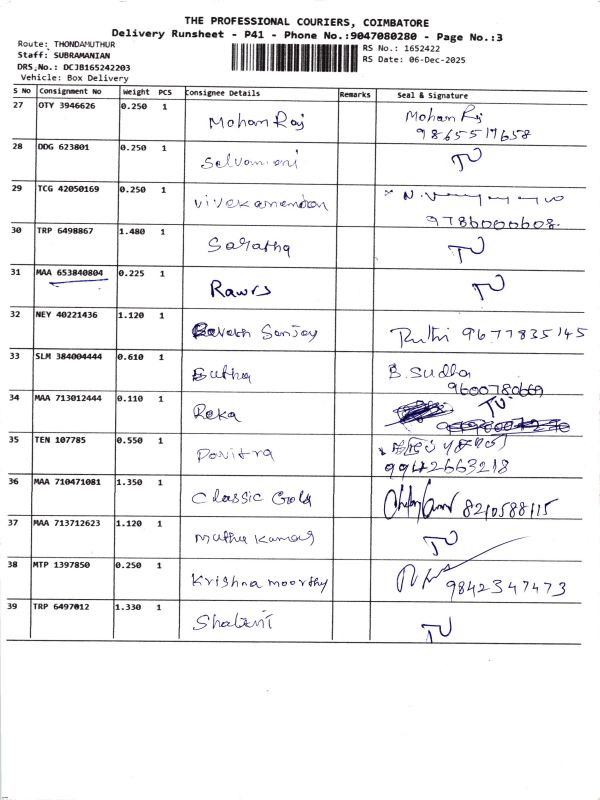 THE PROFESSIONAL COURIERS, COIMBATORE
Delivery Runsheet - P41 - Phone No.:9047080280 - Page No.:3
Route: THONDAMUTHUR
Staff: SUBRAMANIAN
DRS.No.: DCJB165242203
Vehicle: Box Delivery
RS No.: 1652422
RS Date: 06-Dec-2025
S No Consignment No Weight PCS Consignee Details Remarks Seal & Signature
27 OTY 3946626 0.250 1 Mohan Raj Mohan Rj
9865517658
28 DDG 623801 0.250 1 Selvamani TU
29 TCG 42050169 0.250 1 Vivekanandan
9786000608
30 TRP 6498867 1.480 1 Saratha TU
31 MAA 653840804 0.225 1 Rawrs TU
32 NEY 40221436 1.120 1 Sanjay Ruthi 9677835145
33 SLM 384004444 0.610 1 Sutha B. Sudha
9600780669
34 MAA 713012444 0.110 1 Reka TU
35 TEN 107785 0.550 1 Pavitra
9942663218
36 MAA 710471081 1.350 1 Classic Gold 8210588115
37 MAA 713712623 1.120 1 Muthu Kumar TU
38 MTP 1397850 0.250 1 Krishna moorthy 9842347473
39 TRP 6497012 1.330 1 TU